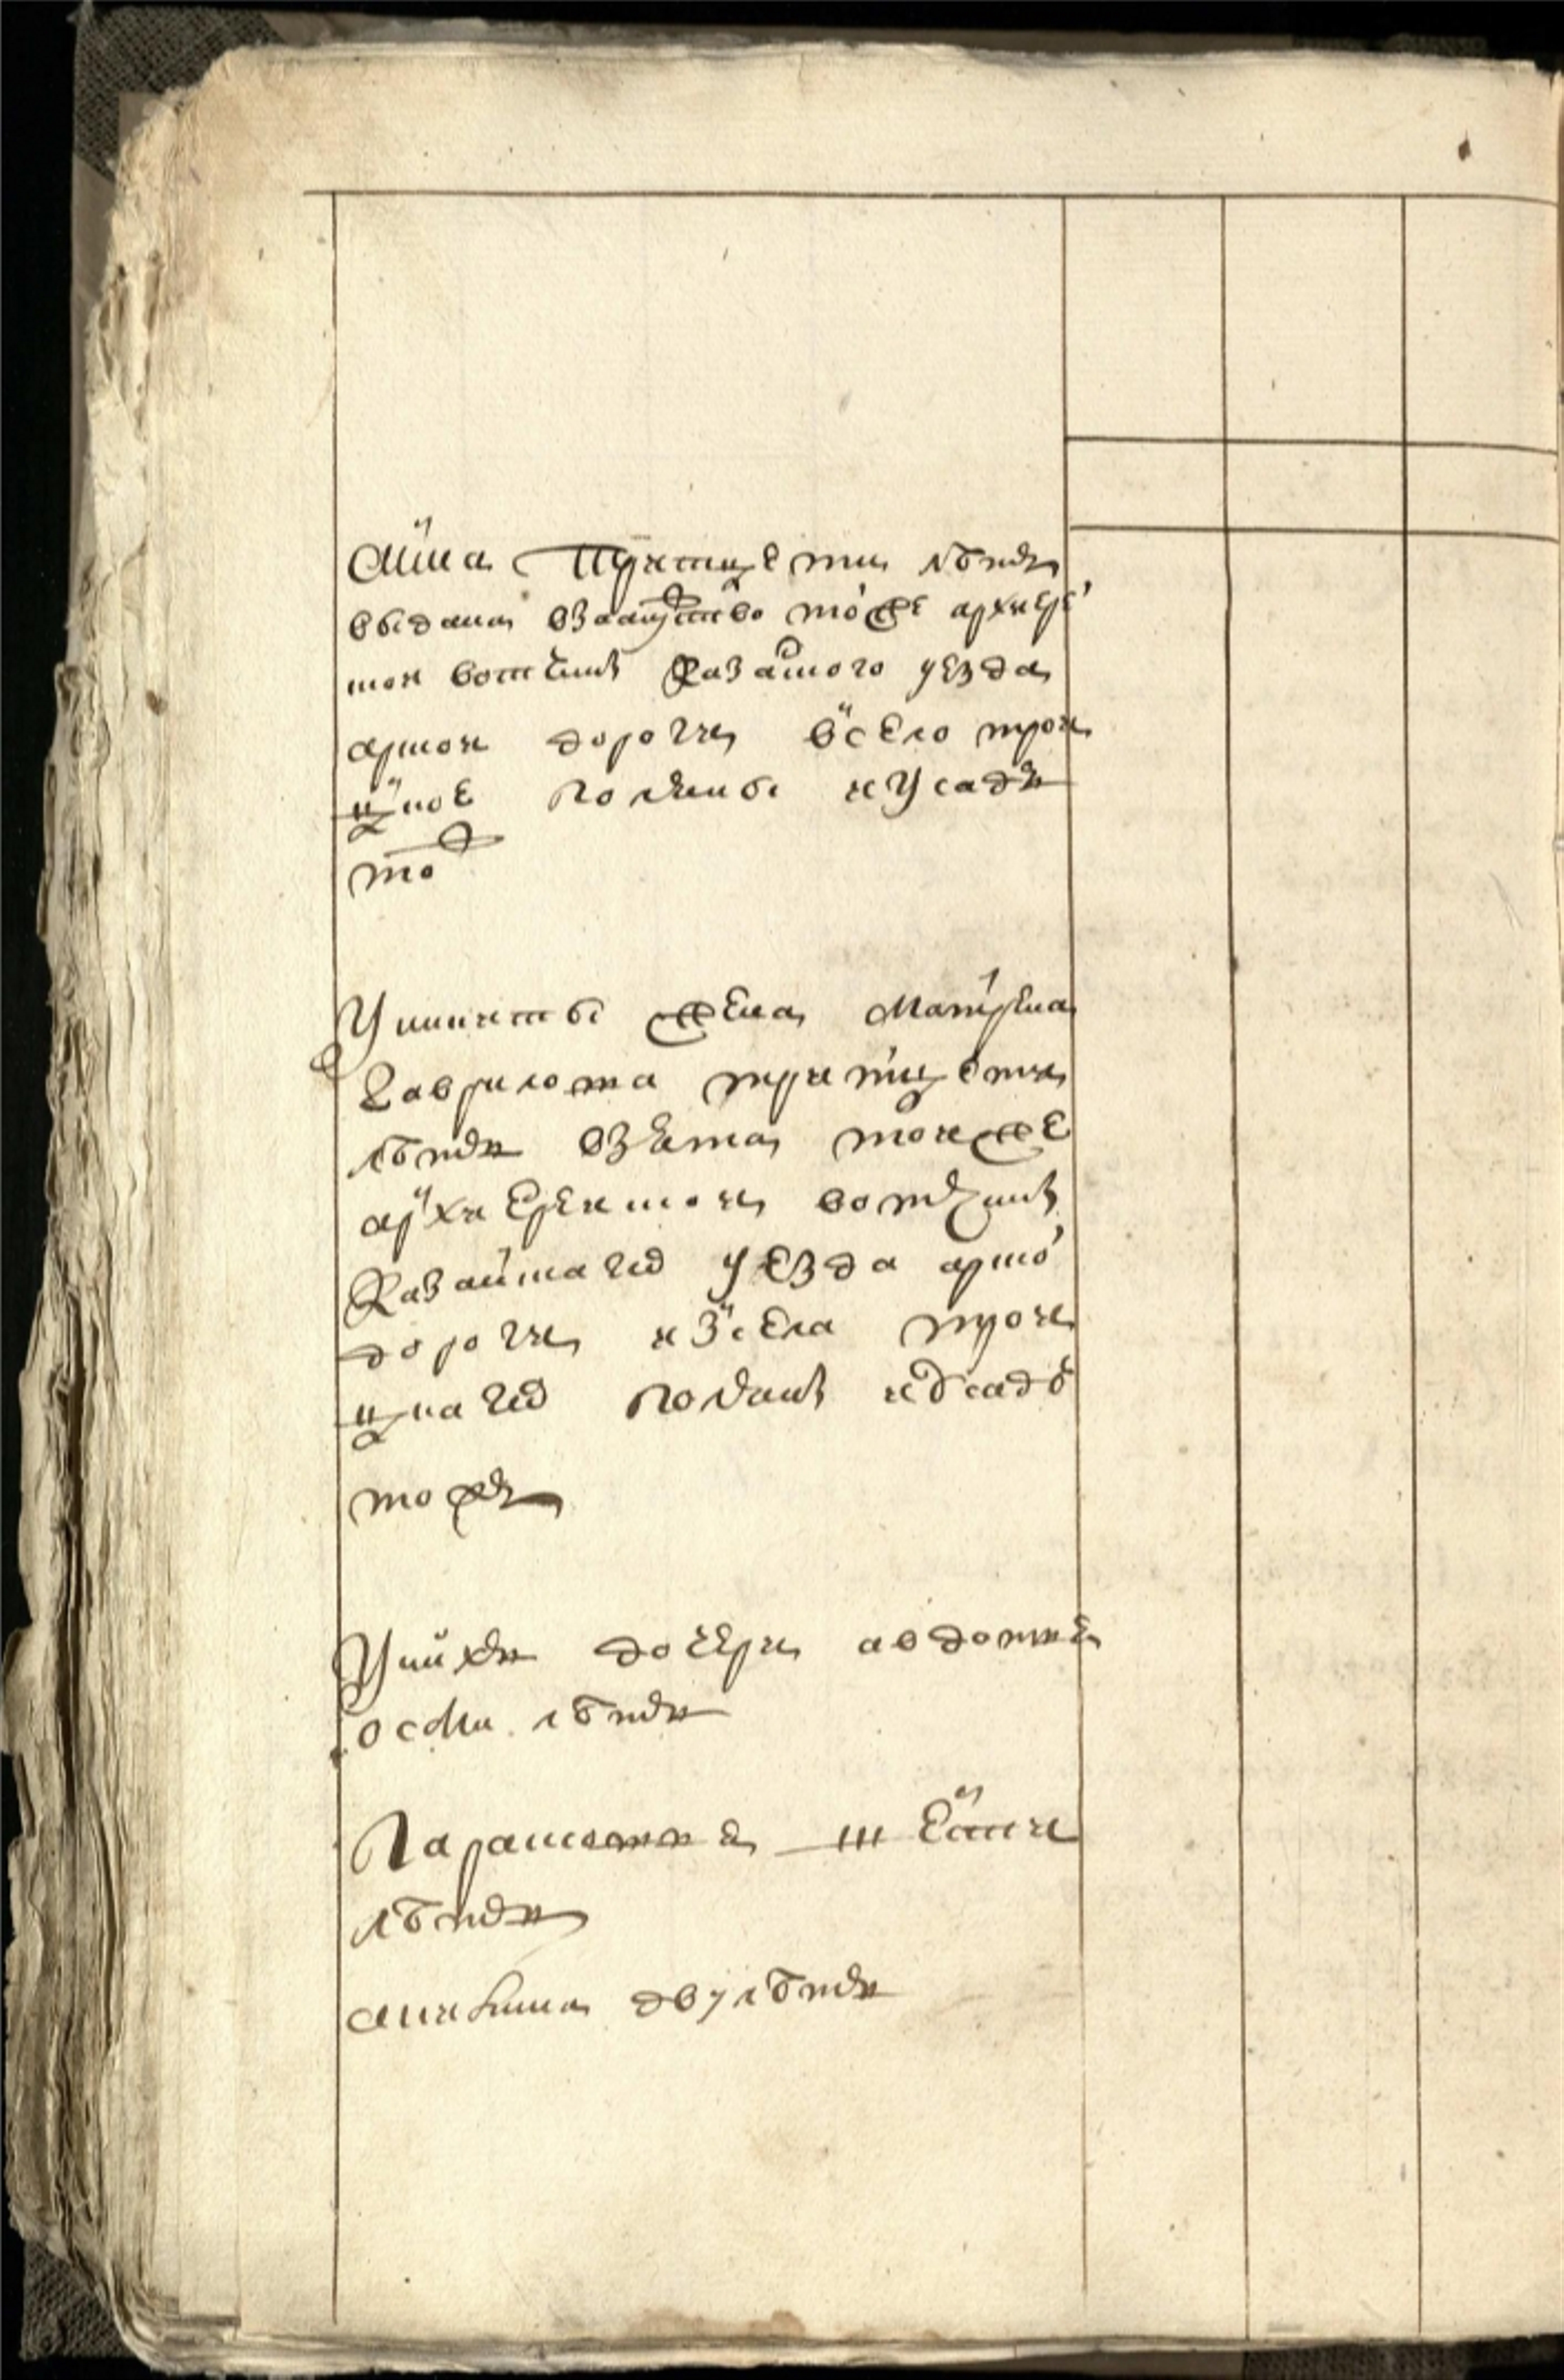 Анна Тритцети летъ
выдана взамужство тоже архиере
ской вотчинѣ Казанского уезда
арской дороги всело трои
цкое поляны и Усады
тож
Уникиты жена Матрена
Гаврилова тритцети
летъ взята той же
архиерейской вотчинѣ
Казанского уезда арской
дороги изсела трои
цкаго полянъ иУсады
тожъ
Унихъ дочери авдотья
осми летъ
Парасковья шести
летъ
аникина двулетъ